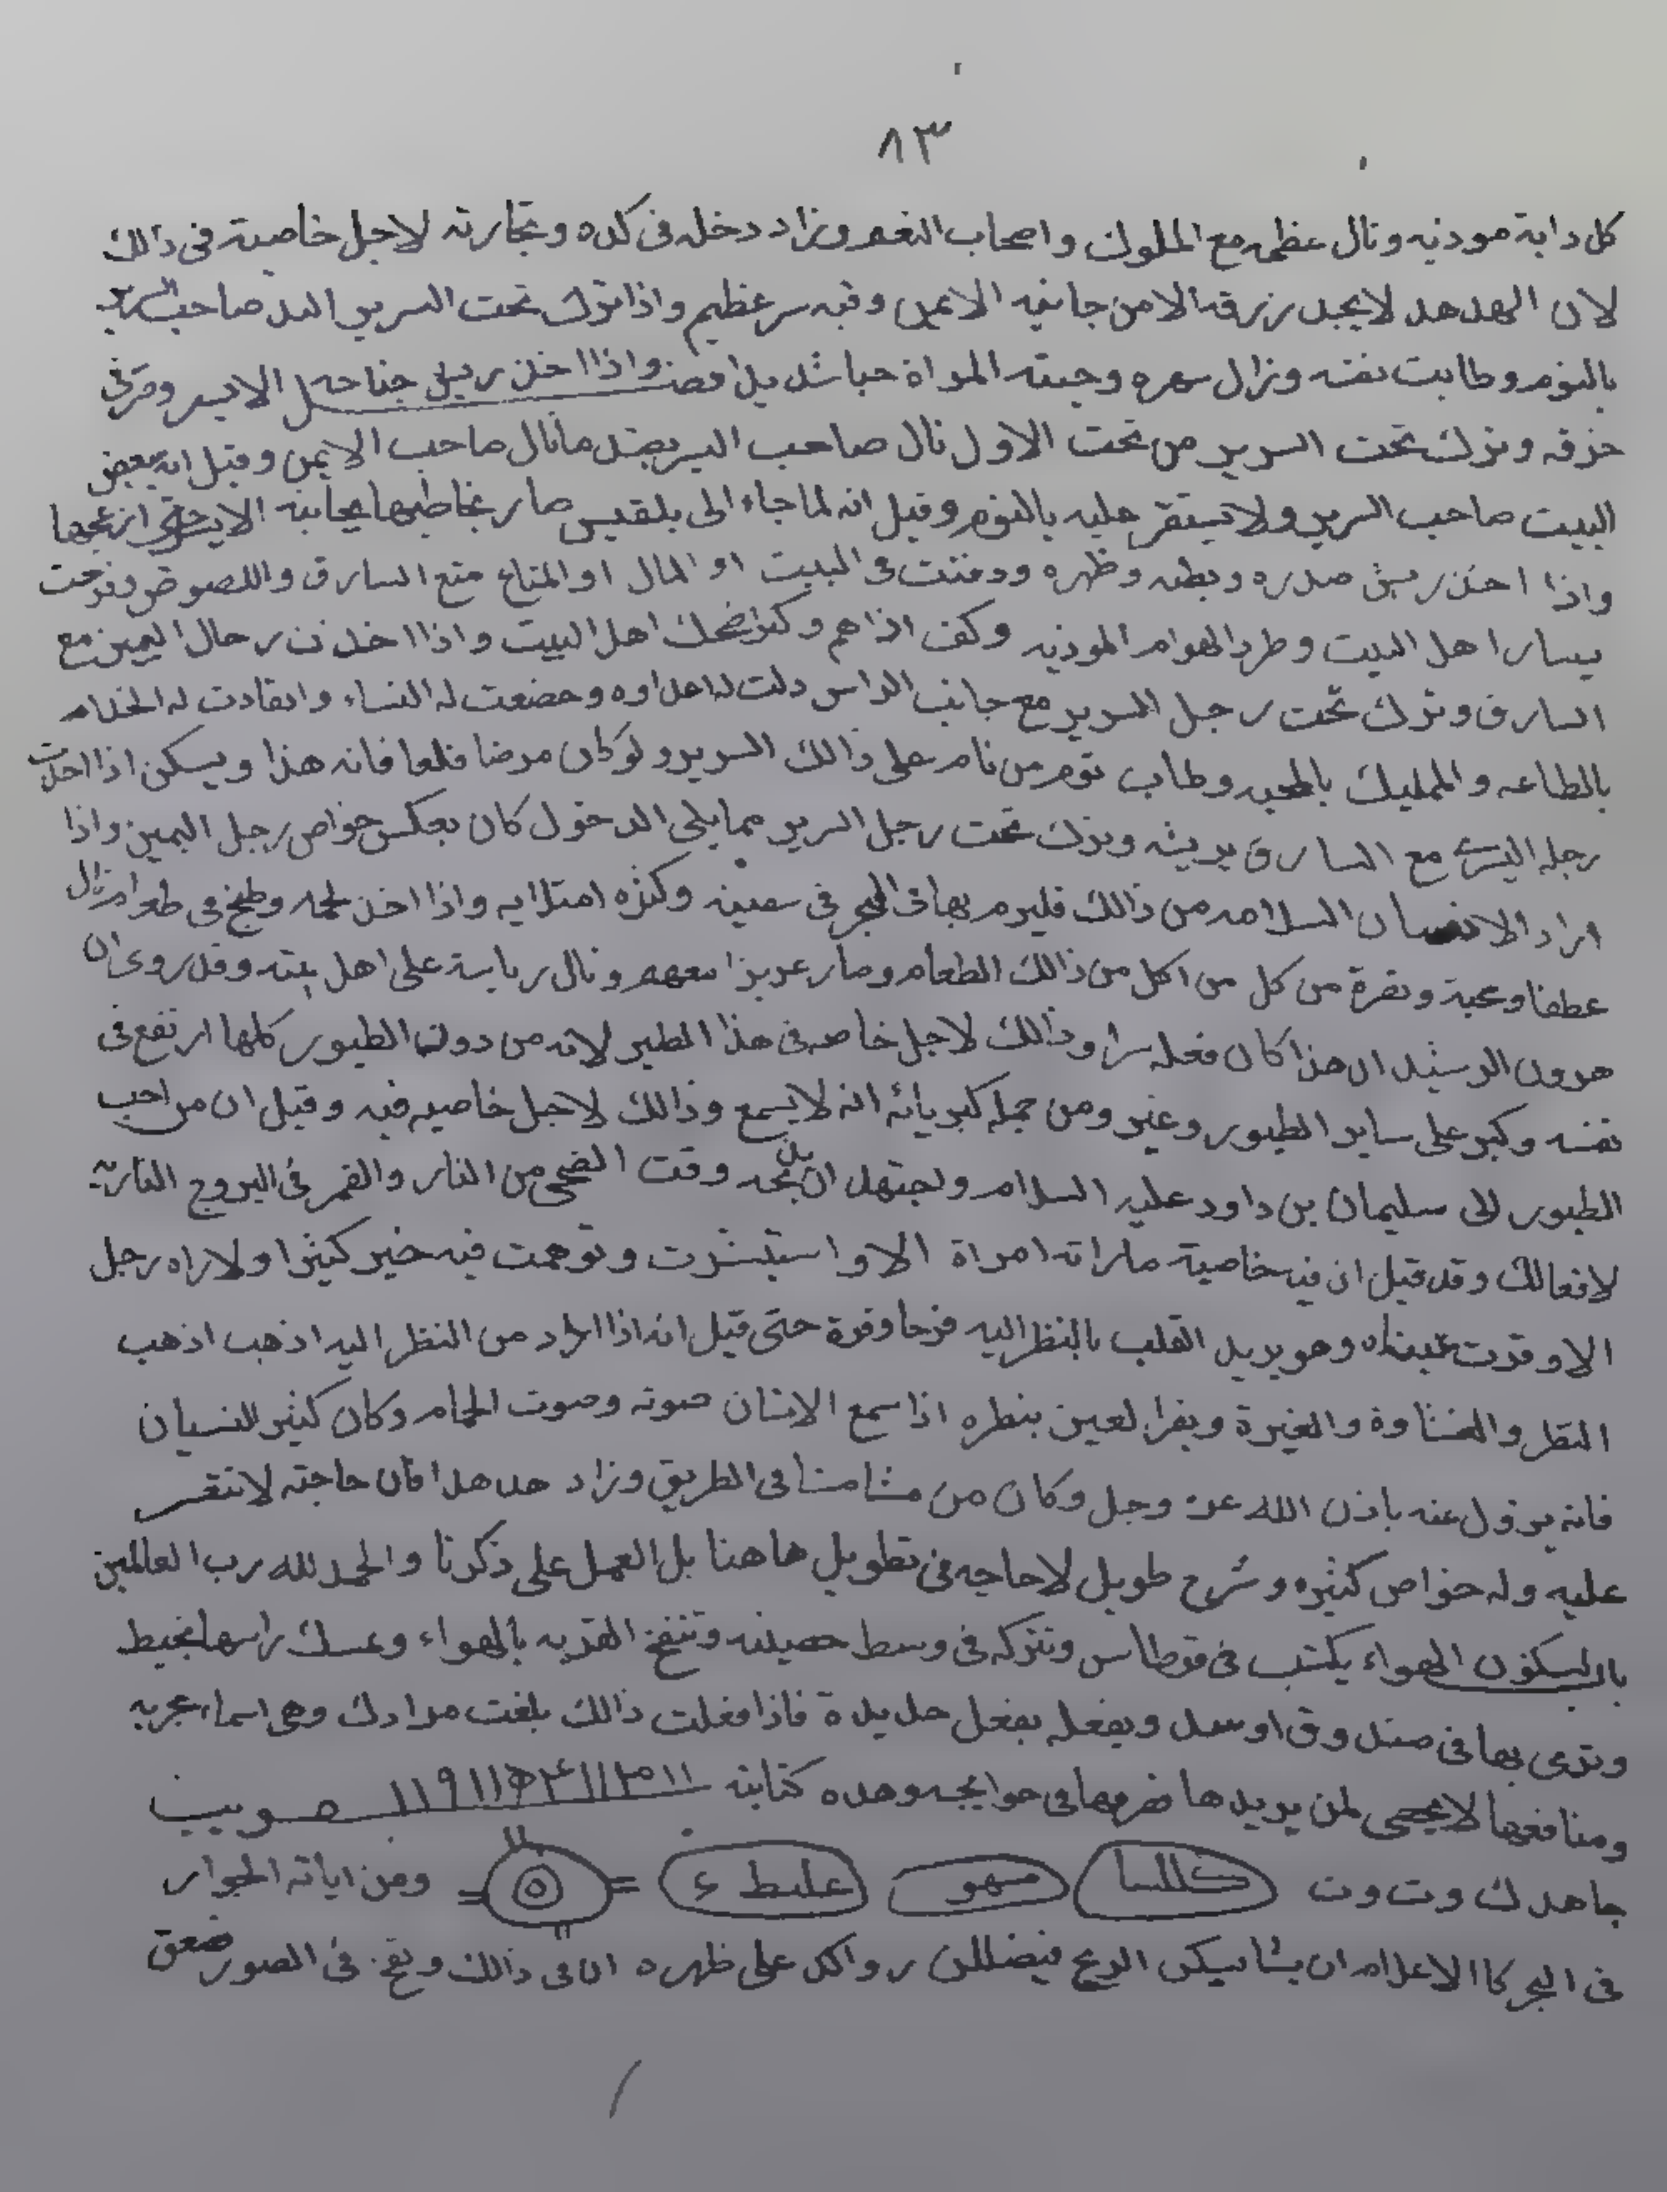 ٨٣
كل دابة موذيه ونال عظمه مع الملوك واصحاب النعم وزاد دخله فى كده وتجارته لاجل خاصية فى ذالك
لان الهدهد لا يجد رزقه الا من جانبه الايمن وفيه سر عظيم واذا ترك تحت السرير صاحب السرير
بالنوم وطابت نفسه وزال سهره وحبته المراة حبا شديدا واذا اخذ ريش جناحه الايسر
خرقه وترك تحت السرير من تحت الاول نال صاحب السرير ضد ما نال صاحب الايمن وقيل انه يبغض
البيت صاحب السرير ولا يستقر عليه بالنوم وقيل انه لما جاء الى بلقيس صار يخاطبها بجانبه حتى ازعجها
واذا اخذ ريش صدره وبطنه وظهره ودفنت فى البيت او المال او المتاع منع السارق واللصوص وفرحت
يسارا اهل البيت وطرد الهوام الموذيه وكف اذاهم وكثر ضحك اهل البيت واذا اخذت رجله اليمين مع
الساق وترك تحت رجل السرير مع جانب الراس ذلت له اعداوه وخضعت له النساء وانقادت له الخدام
بالطاعه والمماليك بالمحبه وطاب نوم من نام على ذالك السرير ولو كان مرضا فانه هذا ويسكن اذا اخذت
رجله اليسرى مع الساق بريشه وترك تحت رجل السرير مما يلى الدخول كان بعكس خواص رجل اليمين واذا
اراد الانسان السلامه من ذالك فليرم بها فى البحر فى سفينه وكثره واذا اخذ لحمه وطبخ فى طعام نال
عطفا ومحبة ونفرة من كل من اكل من ذالك الطعام وصار عزيزا معهم ونال رياسة على اهل بيته وقد روى ان
هرون الرشيد ان هذا كان فعله سرا وذالك لاجل خاصه فى هذا الطير لانه من دون الطيور كلها ارتفع فى
نفسه وكبر على ساير الطيور وغير ومن جملة كبريائه انه لا يسمع وذالك لاجل خاصيه فيه وقيل ان من احب
الطيور الى سليمان بن داود عليه السلام ولجتهد ان وقت الضحى من النار والقمر فى البروج الناريه
لافعالك وقد قيل ان فيه خاصية ما راته امراة الا واستبشرت وتوهمت فيه خير كثيرا ولا راه رجل
الا وقرت عيناه وهو يريد القلب بالنظر اليه فرحا وقرة حتى قيل انه اذا اراد من النظر اليه اذهب اذهب
النظر والغشاوة والغيرة ويقر العين بنظره اذا سمع الانسان صوته وصوت الحمام وكان كثير النسيان
فانه يزول عنه باذن الله عز وجل وكان من فى الطريق وزاد هدهدا فان حاجته لا تتعسر
عليه وله خواص كثيره وشرح طويل لا حاجه فى تطويل هاهنا بل العمل على ذكرنا والحمد لله رب العالمين
باب لسكون الهواء يكتب فى قرطاس وتتركه فى وسط وتنفخ القربه بالهواء وتمسك راسها بخيط
وترمى بها فى صندوق ويقفله بقفل حديدة فاذا فعلت ذالك بلغت مرادك وهى اسماء مجربه
ومنافعها لا تحصى لمن يريدها صرفها فى حوايجه وهذه كتابته
جاهدك وت وت كللسا مهو علبط ء ه ومن اياته الجوار
فى البحر كاالاعلام ان يشا يسكن الريح فيضللن رواكد على ظهره ان فى ذالك ونفخ فى الصور فصعق